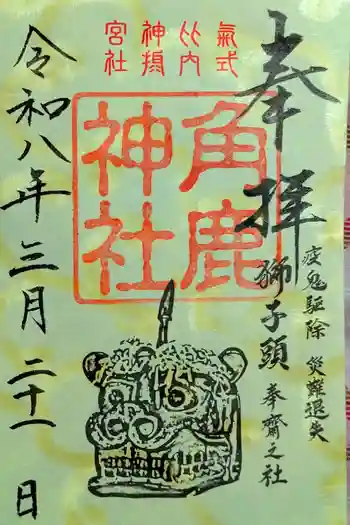 奉拝
疫鬼駆除 災難退失
獅子頭 奉齋之社
氣比
式内
摂
神社
宮
角鹿
神社
令和八年三月二十一日